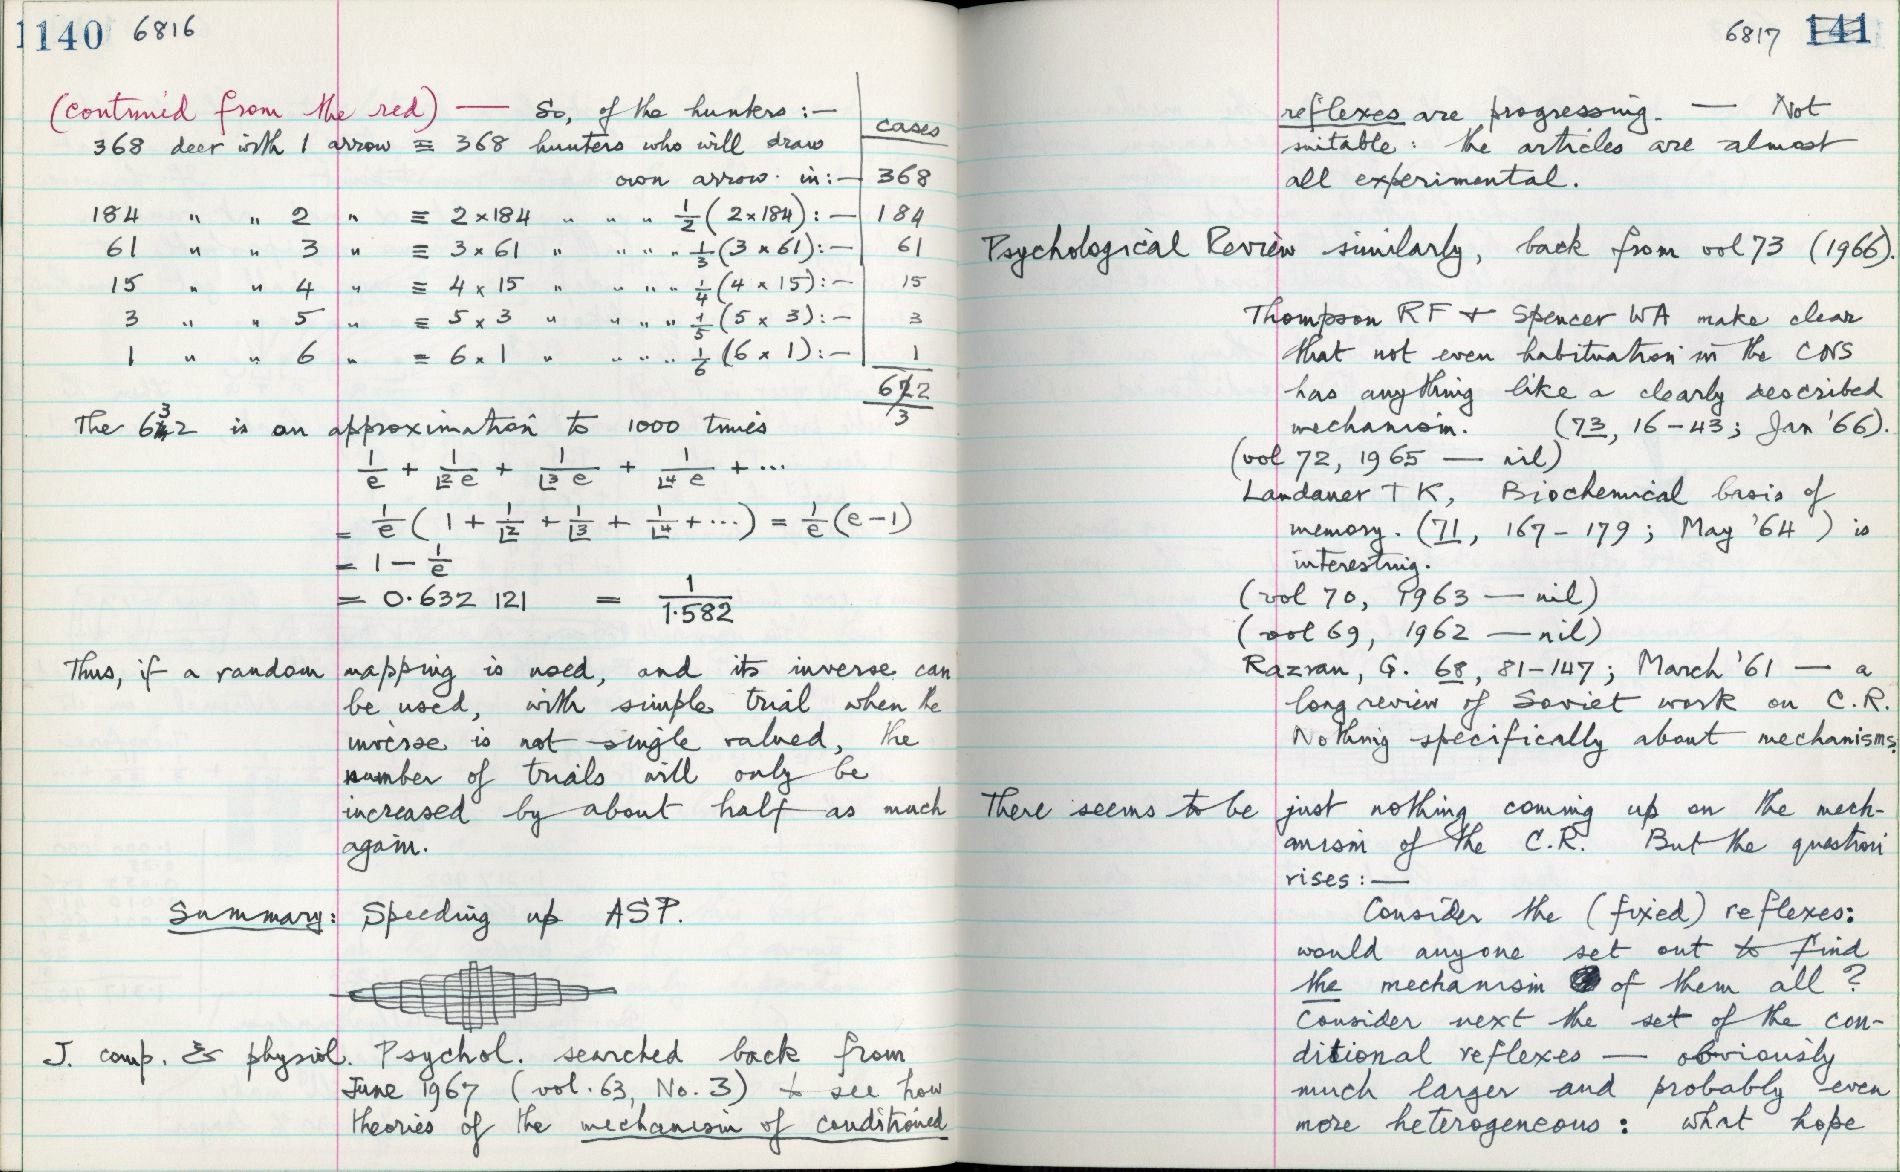 1140 6816
(contin'd from the red) — So, of the hunters :—
cases
368 deer with 1 arrow ≡ 368 hunters who will draw
own arrow in :— 368
184 " " 2 " ≡ 2×184 " " " " 1/2 (2×184) :— 184
61 " " 3 " ≡ 3×61 " " " " 1/3 (3×61) :— 61
15 " " 4 " ≡ 4×15 " " " " 1/4 (4×15) :— 15
3 " " 5 " ≡ 5×3 " " " " 1/5 (5×3) :— 3
1 " " 6 " ≡ 6×1 " " " " 1/6 (6×1) :— 1
622
3
The 632 is an approximation to 1000 times
1/e + 1/(⌊2 e) + 1/(⌊3 e) + 1/(⌊4 e) + ...
= 1/e (1 + 1/⌊2 + 1/⌊3 + 1/⌊4 + ...) = 1/e (e−1)
= 1 − 1/e
= 0·632 121 = 1/1·582
Thus, if a random mapping is used, and its inverse can
be used, with simple trial when the
inverse is not single valued, the
number of trials will only be
increased by about half as much
again.
Summary: Speeding up ASP.
J. comp. & physiol. Psychol. searched back from
June 1967 (vol. 63, No. 3) to see how
theories of the mechanism of conditioned
6817 141
reflexes are progressing. — Not
suitable: the articles are almost
all experimental.
Psychological Review similarly, back from vol 73 (1966).
Thompson RF + Spencer WA make clear
that not even habituation in the CNS
has anything like a clearly described
mechanism. (73, 16–43; Jan '66).
(vol 72, 1965 — nil)
Landauer T K, Biochemical basis of
memory. (71, 167–179; May '64) is
interesting.
(vol 70, 1963 — nil)
(vol 69, 1962 — nil)
Razran, G. 68, 81–147; March '61 — a
long review of Soviet work on C.R.
Nothing specifically about mechanisms.
There seems to be just nothing coming up on the mech-
anism of the C.R. But the question
rises :—
Consider the (fixed) reflexes:
would anyone set out to find
the mechanism of them all?
Consider next the set of the con-
ditional reflexes — obviously
much larger and probably even
more heterogeneous: what hope